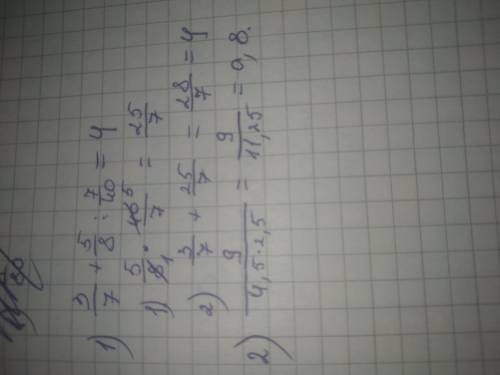 1) 3/7 + 5/8 : 7/40 = 4
1) 5/8 · 40/7 = 25/7
2) 3/7 + 25/7 = 28/7 = 4
2) 9/(4,5·2,5) = 9/11,25 = 0,8.